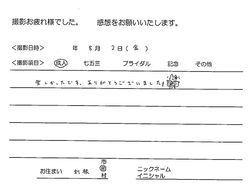 撮影お疲れ様でした。　感想をお願いいたします。
撮影日時　　年 8 月 2 日（金）
撮影項目　成人　七五三　ブライダル　記念　その他
楽しかったです。ありがとうございました!
お住まい　市 町 村　ニックネーム イニシャル